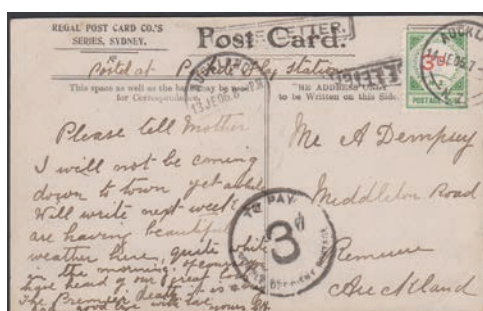 REGAL POST CARD CO.'S
SERIES, SYDNEY.
Post Card.
LETTER.
Posted at Railway Station
This space as well as the back may be used
for Correspondence.
THE ADDRESS ONLY
to be Written on this Side.
AUCKLAND
13 JE 06
AUCKL
14 JE 06
3D
POSTAGE DUE
Please tell Mother
I will not be coming
down to town yet awhile
Will write next week
are having beautiful
weather here, quite white
in the morning. of course you
have heard of our great loss
The Premier death it is a
good bye with love yours
TO PAY
3d
Mr A Dempsey
Middleton Road
Remuera
Auckland